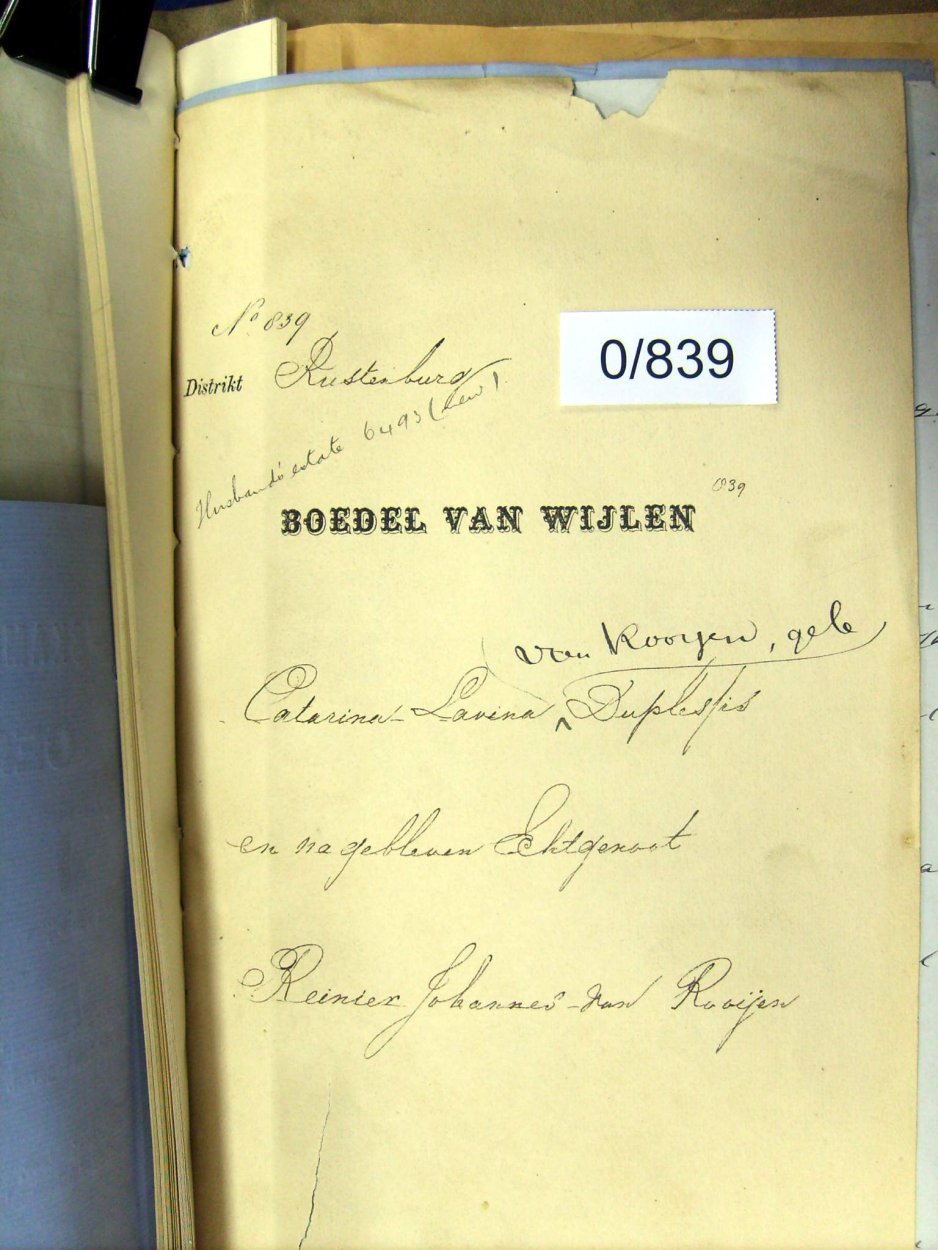 No 839
0/839
Distrikt Rustenburg
Husband's estate 6493 (New)
839
BOEDEL VAN WIJLEN
van Rooyen, geb
Catarina Lavina ^ Duplessis
en nagebleven Echtgenoot
Reinier Johannes van Rooijen